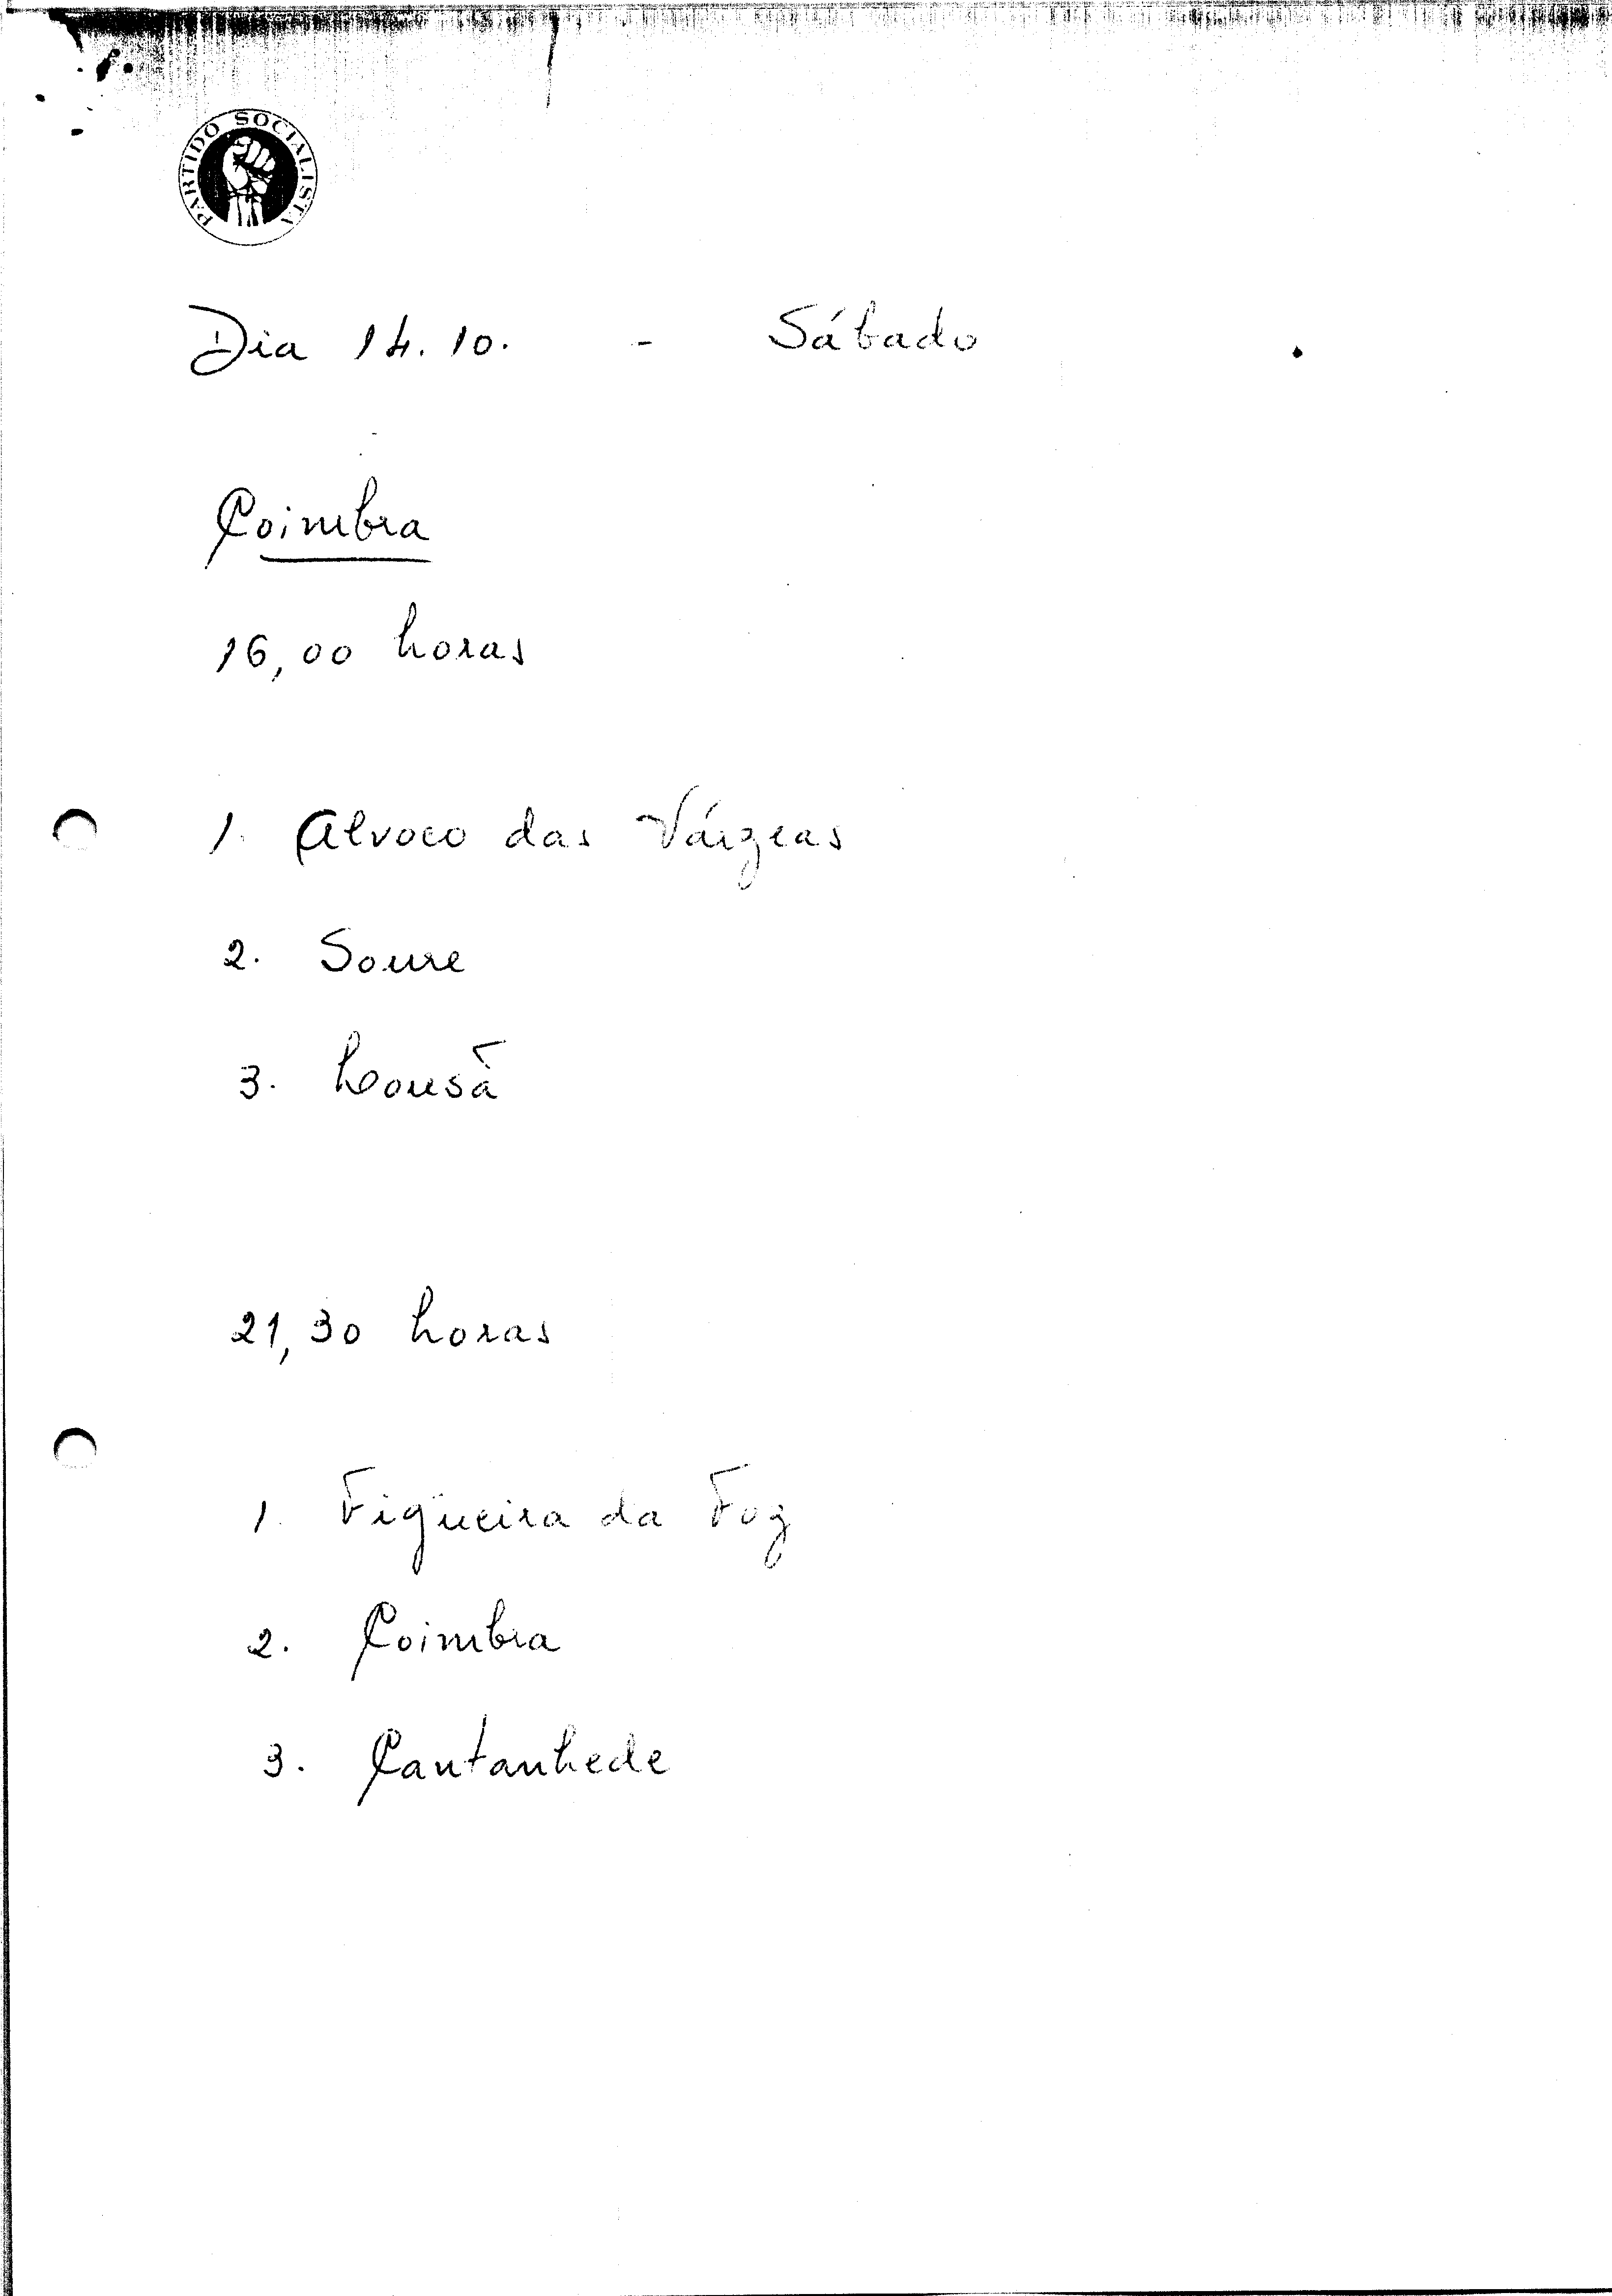 PARTIDO SOCIALISTA
Dia 14.10. - Sábado
Coimbra
16,00 horas
1. Alvoco das Várzeas
2. Soure
3. Lousã
21,30 horas
1. Figueira da Foz
2. Coimbra
3. Cantanhede